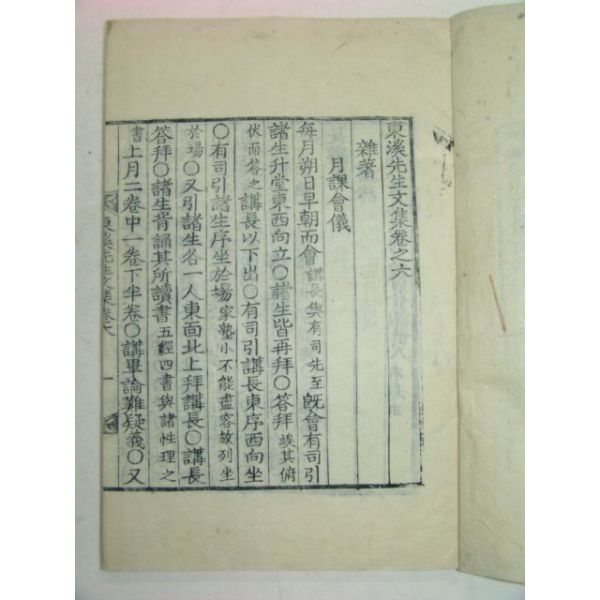 東溪先生文集卷之六
雜著
月課會儀
每月朔日早朝而會講長與有司先至旣會有司引
諸生升堂東西向立○諸生皆再拜○答拜竢其俯
伏而答之講長以下出○有司引講長東序西向坐
○有司引諸生序坐於場家塾小不能盡容故列坐
於場○又引諸生各一人東面北上拜講長○講長
答拜○諸生背誦其所讀書五經四書與諸性理之
書上月二卷中一卷下半卷○講畢論難疑義○又
東溪先生文集卷六
一